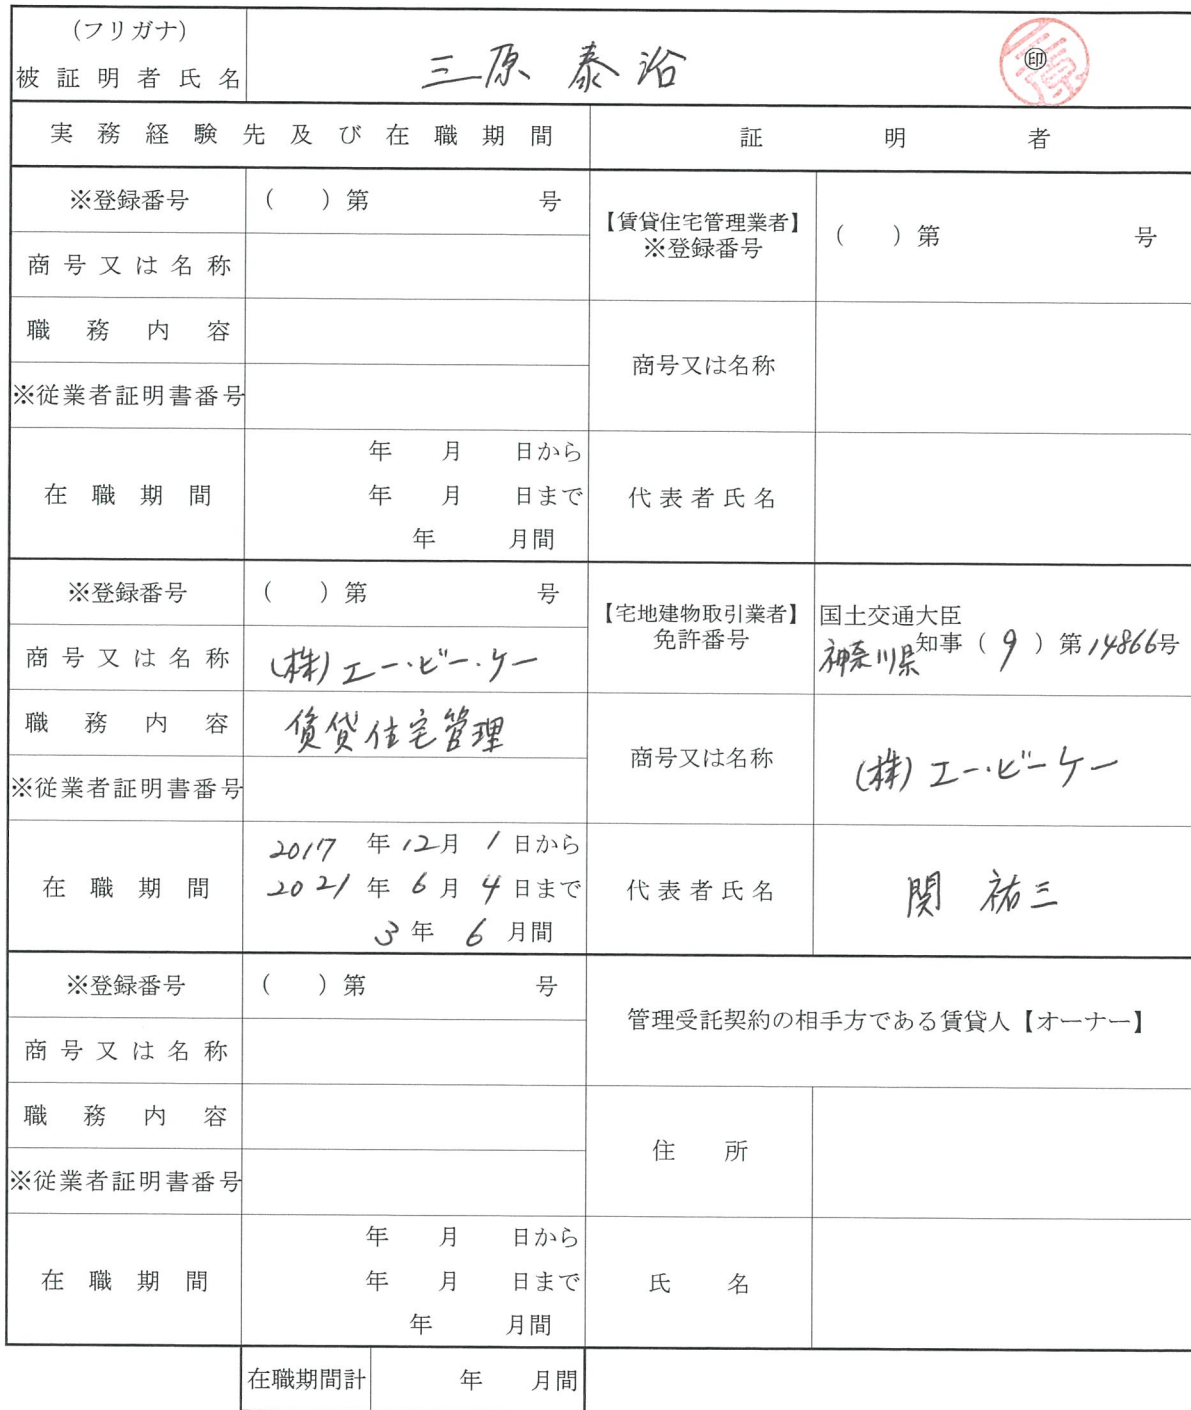 (フリガナ)
被証明者氏名 三原 泰治 ㊞
実務経験先及び在職期間 証明者
※登録番号 ( )第 号
【賃貸住宅管理業者】
※登録番号 ( )第 号
商号又は名称
職務内容
商号又は名称
※従業者証明書番号
在職期間
年 月 日から
年 月 日まで
年 月間
代表者氏名
※登録番号 ( )第 号
【宅地建物取引業者】
免許番号
国土交通大臣
神奈川県知事(9)第14866号
商号又は名称 (株)エー・ビー・ケー
職務内容 賃貸住宅管理
商号又は名称 (株)エー・ビーケー
※従業者証明書番号
在職期間
2017年12月1日から
2021年6月4日まで
3年6月間
代表者氏名 関 祐三
※登録番号 ( )第 号
管理受託契約の相手方である賃貸人【オーナー】
商号又は名称
職務内容
住所
※従業者証明書番号
在職期間
年 月 日から
年 月 日まで
年 月間
氏名
在職期間計 年 月間